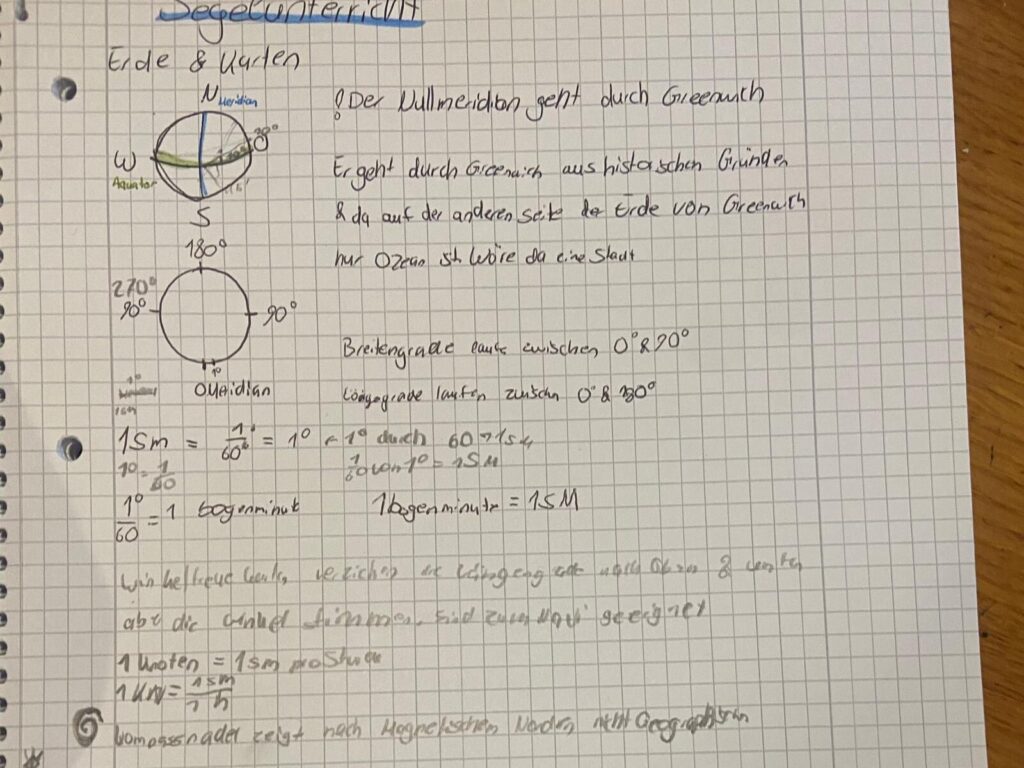 Segelunterricht
Erde & Karten
N Meridian
! Der Nullmeridian geht durch Greenwich
W
O
Äquator
Er geht durch Greenwich aus historischen Gründen
S
& da auf der anderen Seite der Erde von Greenwich
180°
nur Ozean ist wäre da eine Staut
270°
90°
90°
Breitengrade laufe zwischen 0° & 90°
1°
0 Meridian
Längegrade laufen zwischn 0° &
1sm = 1/60° = 1° 1° durch 60
1° = 1/60
1/60 von 1° = 1SM
1°/60 = 1 bogenminut
1bogenminute = 1SM
Winkeltreue verzichen die nach oben &
abe die Winkel stimmen, sind zum Navi geeignet
1 Knoten = 1sm pro Stunde
1 KN = 1sm/1h
Kompassnadel zeigt nach Magnetischen Norden nicht Geographischn